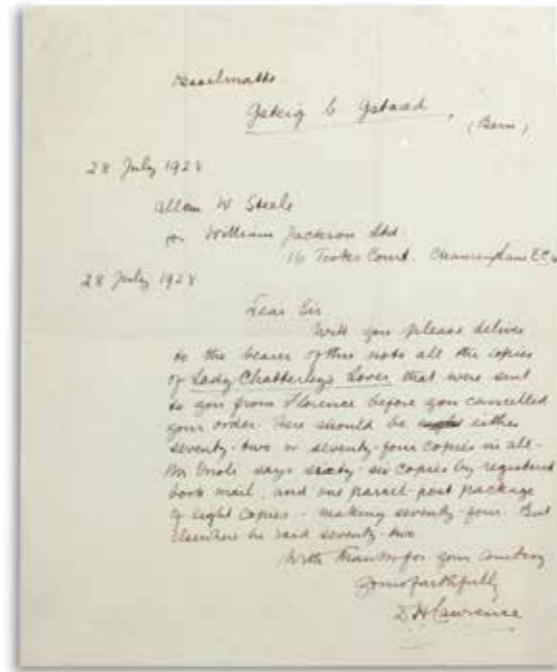 Kesselmatte
Gsteig b Gstaad,
(Bern)
28 July 1928
Allan W Steele
for William Jackson Ltd
16 Tookes Court. Chancery Lane E C 4
28 July 1928
Dear Sir
Will you please deliver
to the bearer of this note all the copies
of Lady Chatterley's Lover that were sent
to you from Florence before you cancelled
your order. There should be either
seventy-two or seventy-four copies in all-
Mr Orioli says sixty-six copies by registered
book mail, and one parcel-post package
of eight copies - making seventy-four. But
elsewhere he said seventy-two
With thanks for your courtesy
Yours faithfully
D. H. Lawrence